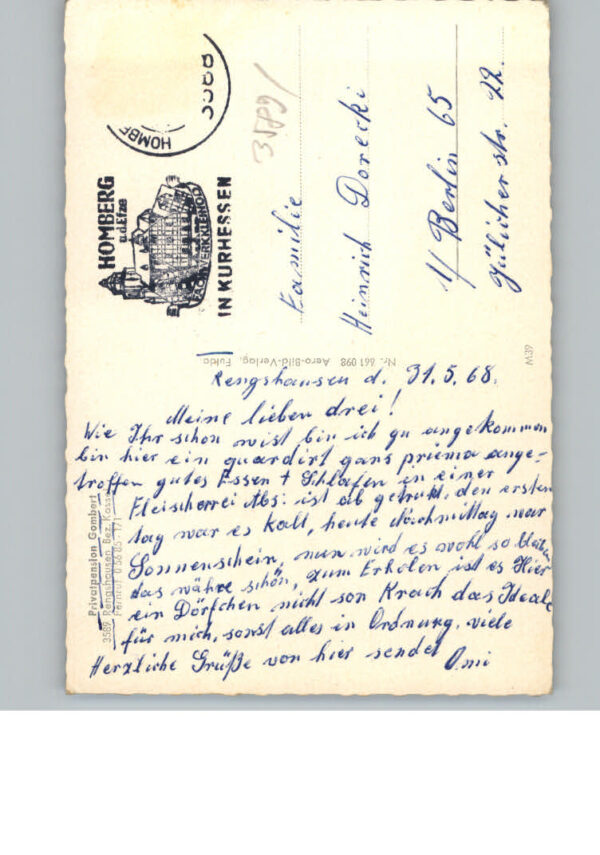 3588
HOMBE
HOMBERG
a.d.Efze
IN KURHESSEN
3589/
Familie
Heinrich Dorecki
1/ Berlin 65
Jülicher str. 22.
Nr. 661 098 Aero-Bild-Verlag, Fulda
M39
Rengshausen d. 31.5.68.
Meine lieben drei!
Wie Ihr schon wist bin ich gu angekommen
bin hier ein quardirt gans priema ange-
troffen gutes Essen + Schlafen in einer
Fleischerrei Abs: ist ab getrukt, den ersten
tag war es kalt, heute Nachmittag war
Sonnenschein, nun wird es wohl so bleiben
das währe schön, zum Erholen ist es Hier
ein Dörfchen nicht son Krach das Ideale
für mich, sonst alles in Ordnung, viele
Herzliche Grüße von hier sendet Omi
Privatpension Gombert
3589 Rengshausen Bez. Kassel
Fernruf 0 56 85 - 171